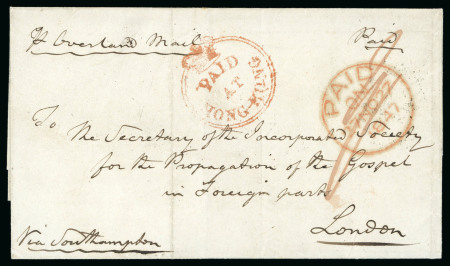 Pr Overland Mail
Paid
PAID
AT
HONG-KONG
PAID
22
1847
To The Secretary of the Incorporated Society
for the Propagation of the Gospel
in Foreign parts
London
Via Southampton